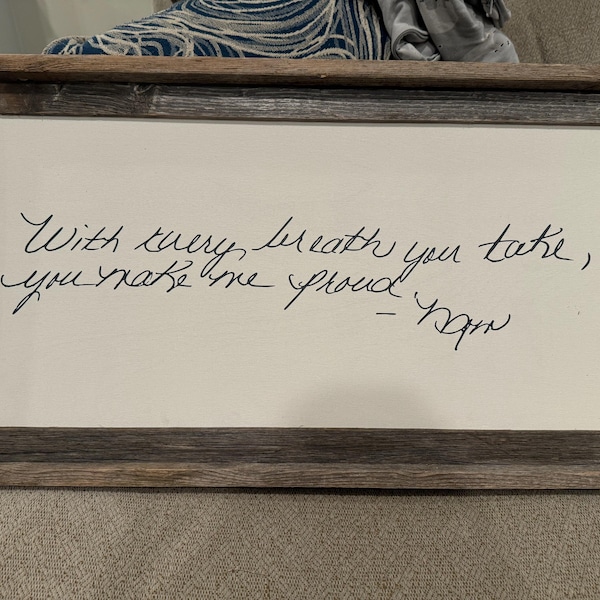 With every breath you take,
you make me proud.
- Mom